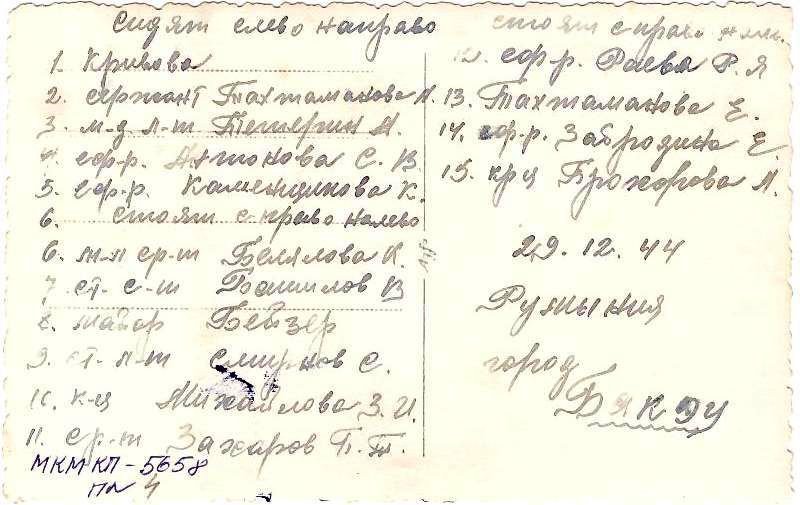 Сидят слево направо
1. Кривова
2. сержант Тахтаманова М.
3. м-д л-т Тетерин М.
4. ефр-р. Антонова С. В.
5. ефр. Каменщикова К.
6. стоят с право налево
6. м-л ср-т Белялова К.
7. ст. с-т Башилов В
8. майор Бейзер
9. ст. л-т Смирнов С.
10. к-ц Михайлова З. И.
11. ср-т Захаров П. Т.
МКМ КП-5658
стоят с право
12. ефр. Раева Р. Я
13. Тахтаманова Е.
14. ефр-р. Забродина Е.
15. кр-ц Прохорова М.
29. 12. 44
Румыния
город
Бакэу